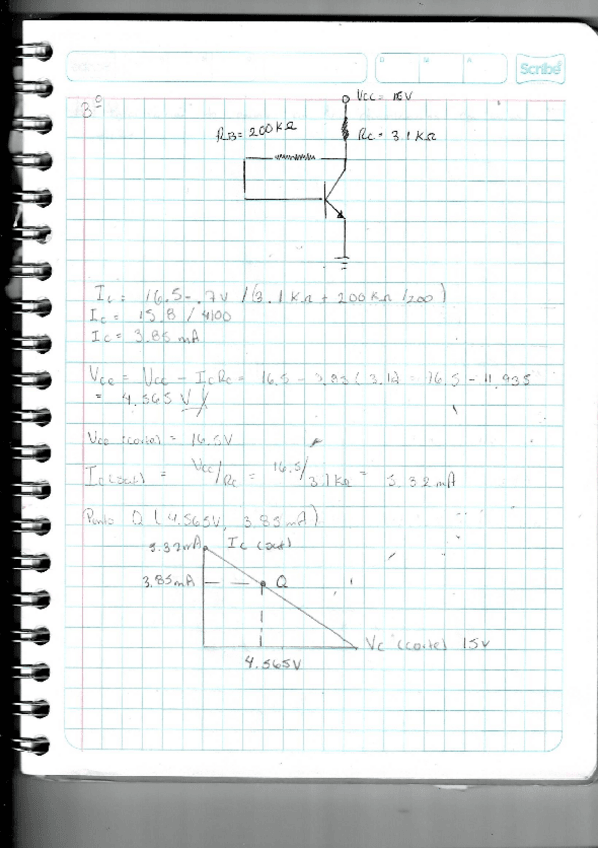 Scribe
3º
VCC = 15V
RB = 200KΩ
RC = 3.1KΩ
Ic = 16.5 - .7V / (3.1KΩ + 200KΩ/200)
Ic = 15.8 / 4100
Ic = 3.85 mA
Vce = Vcc - IcRc = 16.5 - 3.85(3.1) = 16.5 - 11.935
= 4.565 V
Vce (corte) = 16.5V
Ic(sat) = Vcc/Rc = 16.5/3.1KΩ = 5.32mA
Punto Q (4.565V, 3.85mA)
5.32mA Ic (sat)
3.85mA Q
Vc (corte) 15V
4.565V